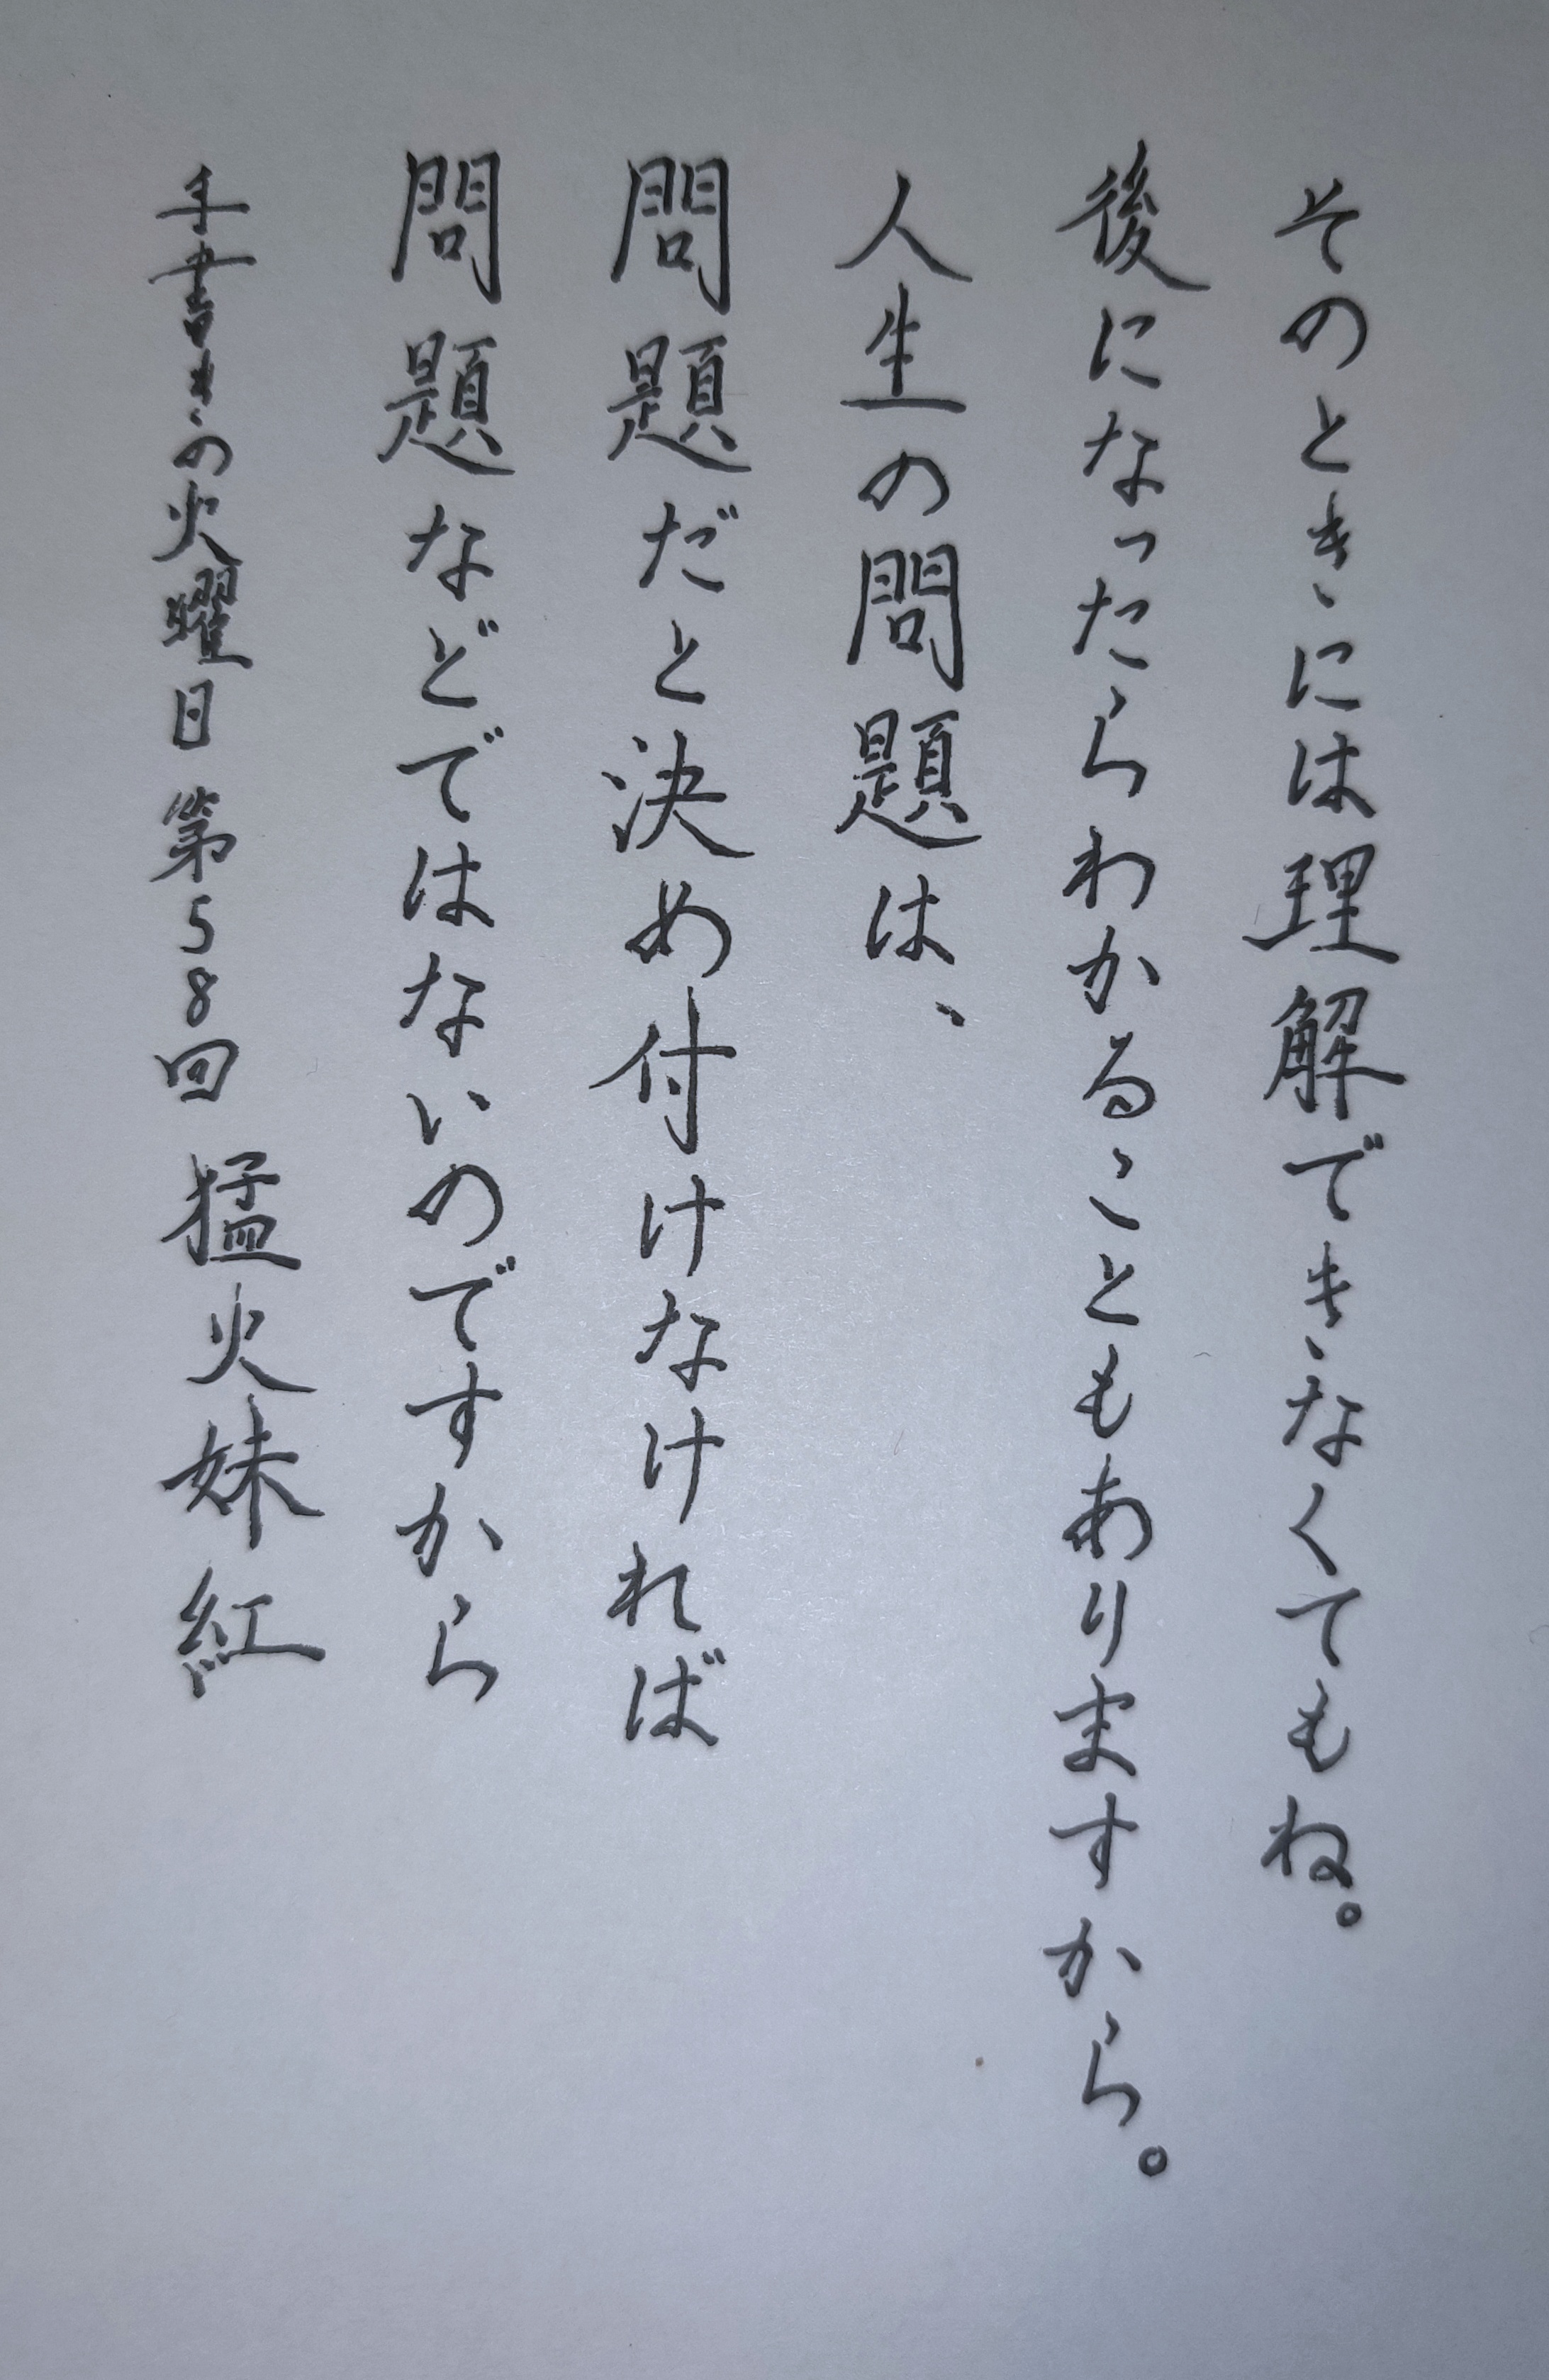 そのときには理解できなくてもね。
後になったらわかることもありますから。
人生の問題は、
問題だと決め付けなければ
問題などではないのですから
手書きの火曜日 第58回 猛火妹紅